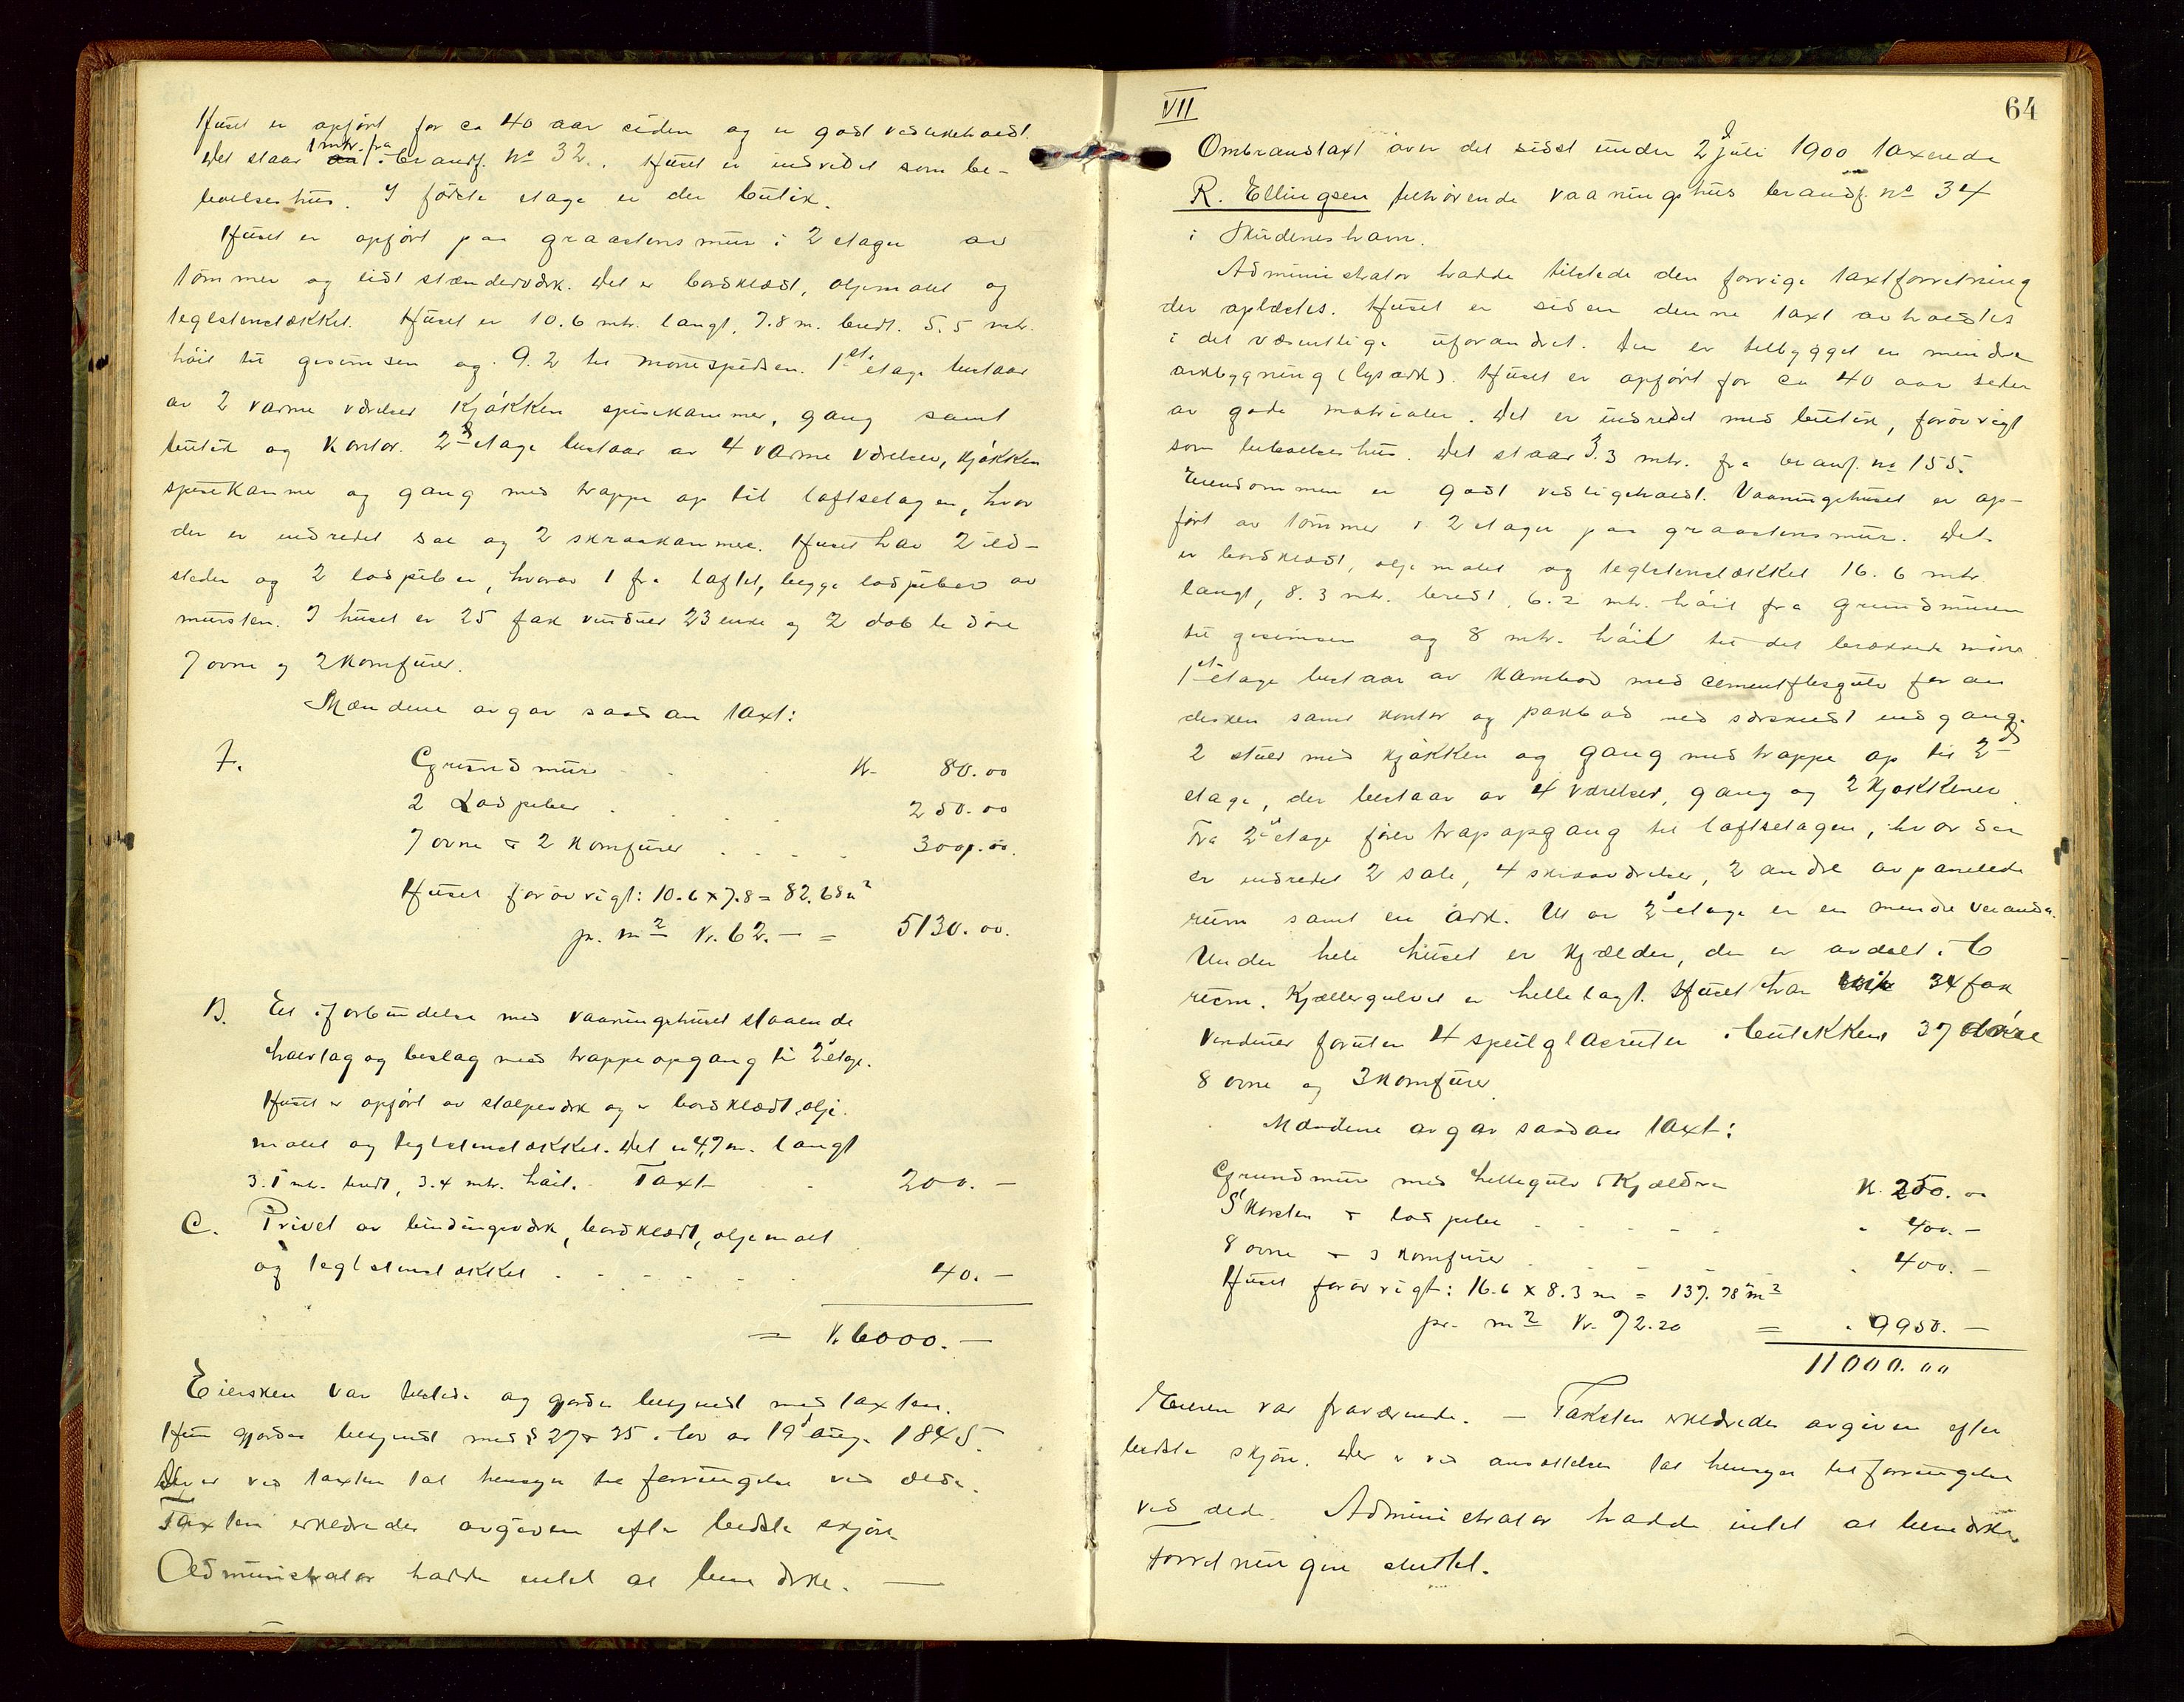 Huset er opført for ca 40 aar siden og er godt vedlikeholdt.
Det staar 1 mtr. fra brandf. No 32. Huset er indredet som be-
boelseshus. I første etage er der butik.
Huset er opført paa graastensmur i 2 etager av
tømmer og lidt stænderværk. Det er bordklædt, oljemalt og
teglstenstækket. Huset er 10.6 mtr. langt, 7.8 m. bredt. 5.5 mtr.
høit til gesimsen og 9.2 til mønespidsen. 1st etage bestaar
av 2 varme værelser kjøkken spisekammer, gang samt
butik og kontor. 2d etage bestaar av 4 varme værelser, kjøkken
spisekammer og gang med trappe op til loftsetagen, hvor
der er indredet sal og 2 skraakammer. Huset har 2 ild-
steder og 2 lodpiber, hvorav 1 fra loftet, begge lodpiber av
mursten. I huset er 25 fak vinduer 23 enke og 2 doble døre
7 ovne og 2 komfurer.
Mændene avgav saadan taxt:
7. Grundmur Kr. 80.00
2 Lodpiber 250.00
7 ovne & 2 komfurer 300.00.
Huset forøvrigt: 10.6 x 7.8 = 82.68 m2
pr. m2 Kr. 62.— = 5130.00.
B. Et i forbindelse med vaaningshuset staaende
halvtag og beslag med trappeopgang til 2d etage.
Huset er opført av stolpeverk og er bordklædt, olje-
malt og teglstenstækket. Det er 4,7 m. langt
3.1 mtr. bredt, 3.4 mtr. høit. Taxt 200.—
C. Privet av bindingsverk, bordklædt, oljemalt
og teglstenstækket 40.—
= Kr. 6000.—
Eiersken var tilstede og gjordes bekjendt med taxten.
Hun gjordes bekjendt med § 27 & 35 i lov av 19d aug. 1845.
Der er ved taxten tat hensyn til forringelse ved ælde.
Taxten erklæredes avgiven efter bedste skjøn
Administrator hadde intet at bemærke. —
VII
64
Ombrandtaxt over det sidst under 2d juli 1900 taxerede
R. Ellingsen tilhørende vaaningshus brandf. no 34
i Skudeneshavn.
Administrator hadde tilstede den forrige taxtforretning
der oplæstes. Huset er siden denne taxt avholdtes
i det væsentlige uforandret. Den er tilbygget en mindre
arkbygning (lysark). Huset er opført for ca 40 aar siden
av gode materialer. Det er indredet med butik, forøvrigt
som beboelseshus. Det staar 3.3 mtr. fra brandf. no 155.
Eiendommen er godt vedligeholdt. Vaaningshuset er op-
ført av tømmer i 2 etager paa graastensmur. Det
er bordklædt, oljemalt og teglstenstækket 16.6 mtr.
langt, 8.3 mtr. bredt, 6.2 mtr. høit fra grundmuren
til gesimsen og 8 mtr. høit til det brækkede møne.
1st etage bestaar av krambod med cementflisgulv foran
disken samt kontor og pakbod med særskildt indgang.
2 stuer med kjøkken og gang med trappe op til 2d
etage, der bestaar av 4 værelser, gang og 2 kjøkkener.
Fra 2d etage fører trapopgang til loftsetagen, hvor der
er indredet 2 sale, 4 skraaværelser, 2 andre avpanelede
rum samt en ark. Ut av 2d etage er en mindre veranda.
Under hele huset er kjælder, der er avdelt i 6
rum. Kjællergulvet er hellelagt. Huset har 34 fak
vinduer foruten 4 speilglasruter i butikken 37 døre
8 ovne og 3 komfurer
Mændene avgav saadan taxt:
Grundmur med hellegulv i kjælderen K. 250.00
5 skorsten & lodpiber " 400.—
8 ovne & 3 komfurer " 400.—
Huset forøvrigt: 16.6 x 8.3 m = 137.78 m2
pr. m2 Kr. 72.20 = " 9950.—
11000.00
Eieren var fraværende. — Taksten erklæredes avgiven efter
bedste skjøn. Der er ved ansættelsen tat hensyn til forringelse
ved ælde. Administrator hadde intet at bemærke
Forretningen sluttet.